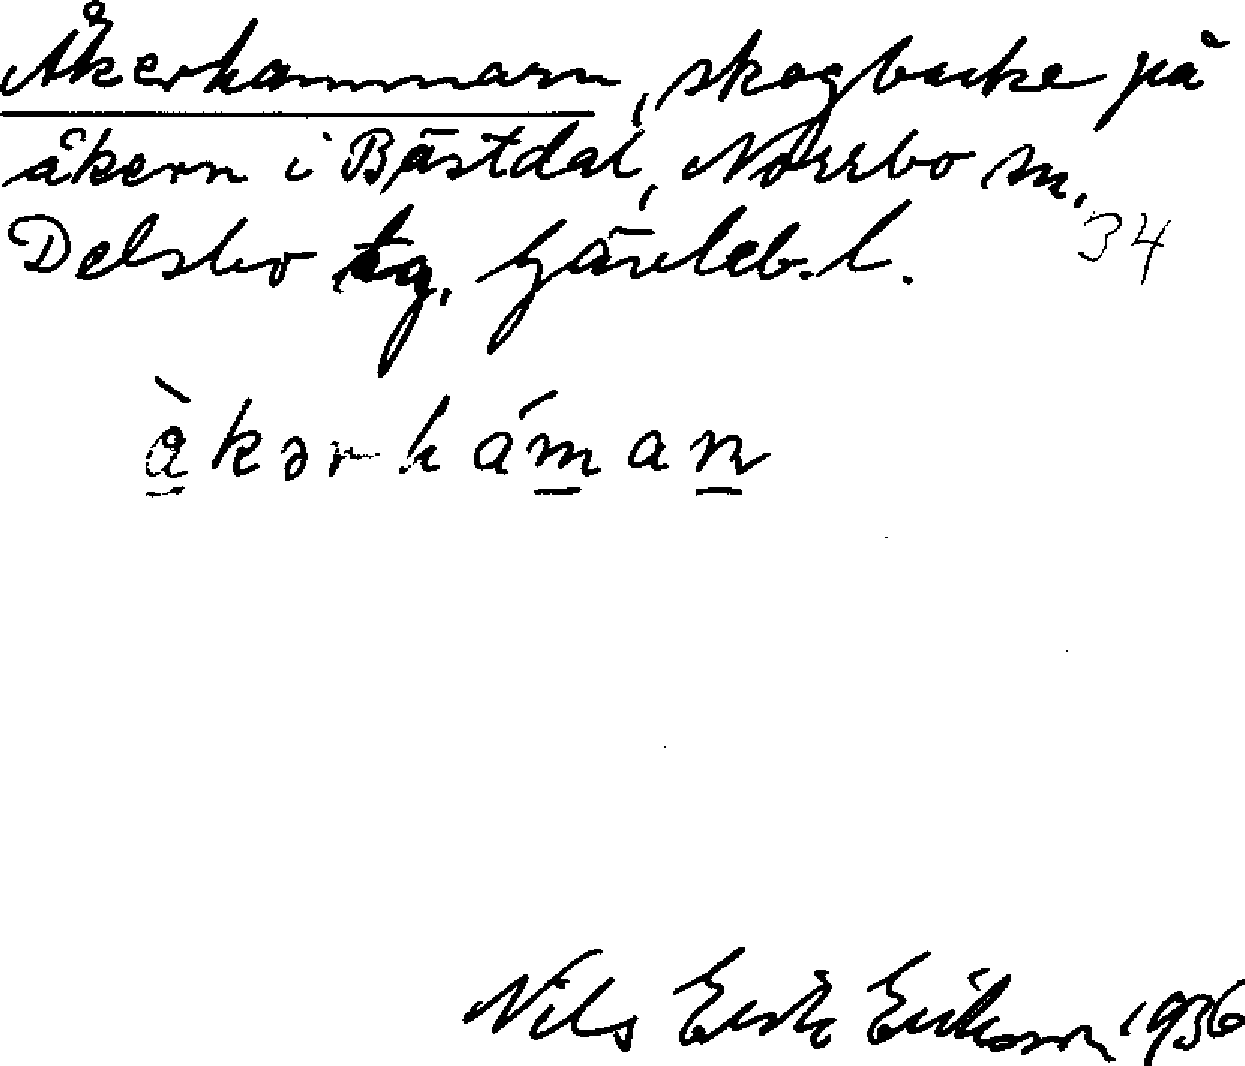 Åkerhammarn, skogbacke på
åkern i Bästdal, Norrbo sn,
Delsbo tg, Gävleb. l. 34
å̀kərháman
Nils Erik Erikson 1936